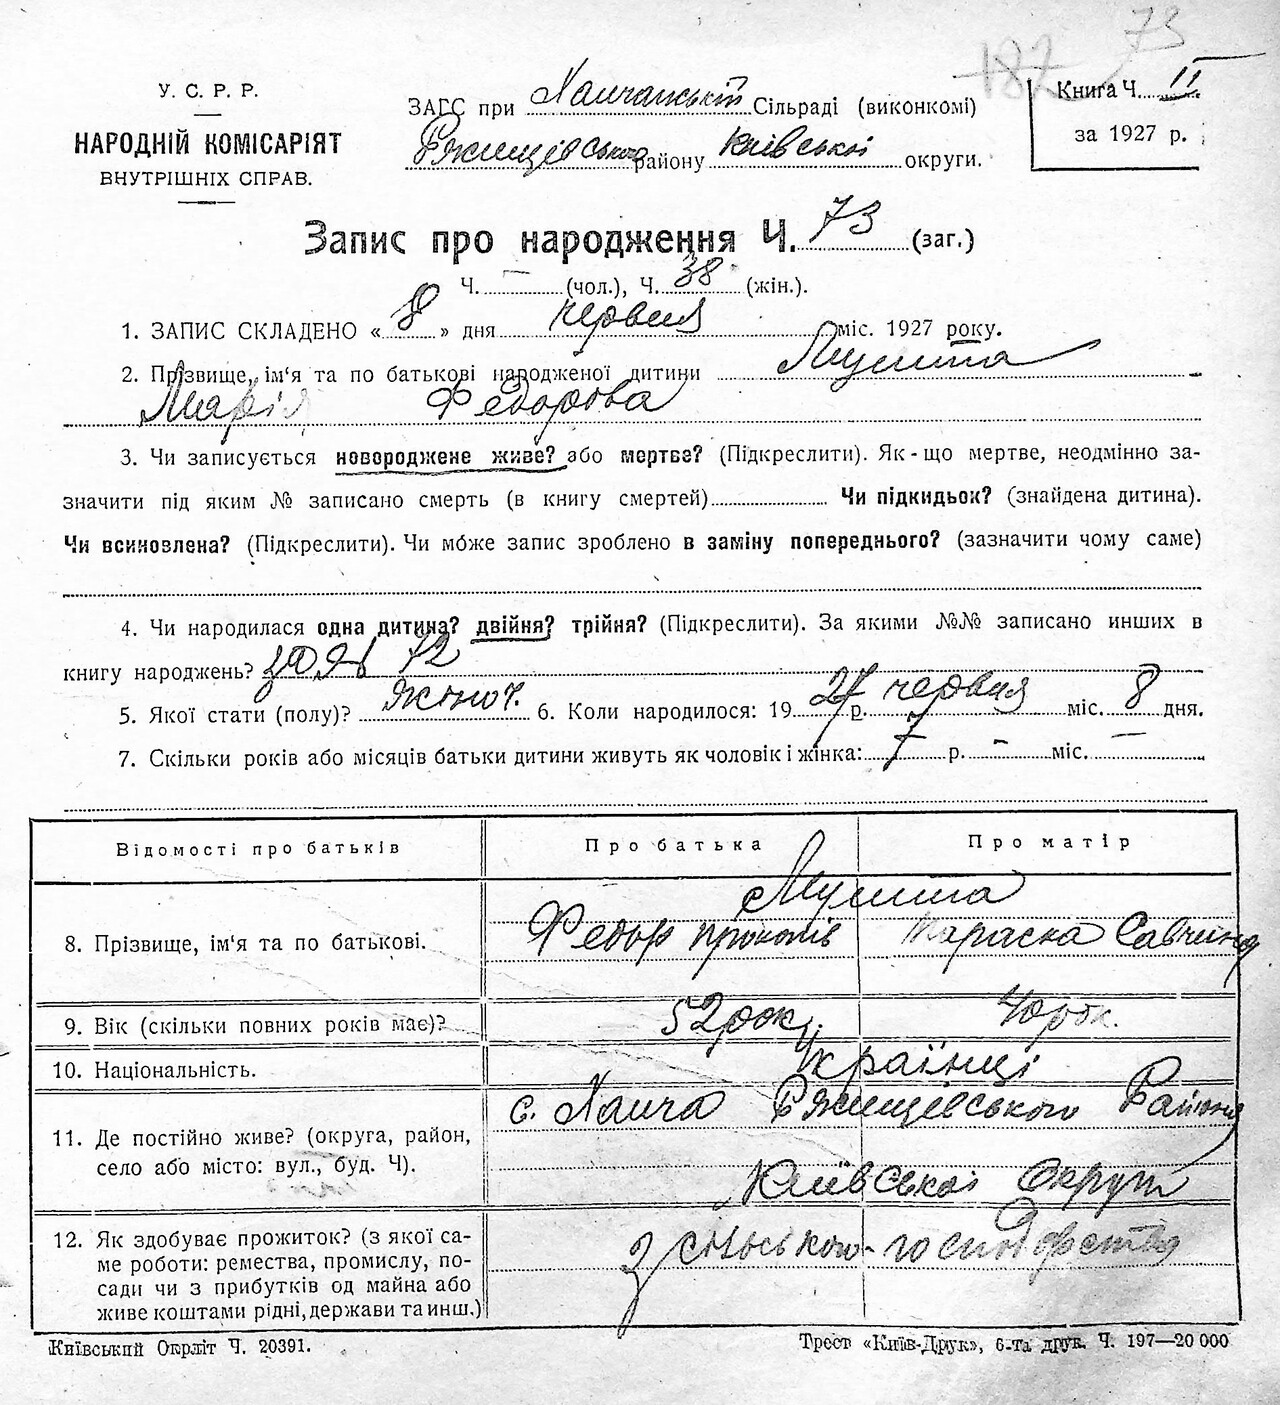 73
182
У. С. Р. Р.
НАРОДНІЙ КОМІСАРІЯТ
ВНУТРІШНІХ СПРАВ.
ЗАГС при Ханчанській Сільраді (виконкомі)
Ржищівського району Київської округи.
Книга Ч. II
за 1927 р.
Запис про народження Ч. 73 (заг.)
Ч. – (чол.), Ч. 38 (жін.).
1. ЗАПИС СКЛАДЕНО « 8 » дня червня міс. 1927 року.
2. Прізвище, ім'я та по батькові народженої дитини
Марія Федорова
3. Чи записується новороджене живе? або мертве? (Підкреслити). Як-що мертве, неодмінно за-
значити під яким № записано смерть (в книгу смертей) Чи підкидьок? (знайдена дитина).
Чи всиновлена? (Підкреслити). Чи може запис зроблено в заміну попереднього? (зазначити чому саме)
4. Чи народилася одна дитина? двійня? трійня? (Підкреслити). За якими №№ записано инших в
книгу народжень? 72
5. Якої стати (полу)? жіноч. 6. Коли народилося: 19 27 р. червня міс. 8 дня.
7. Скільки років або місяців батьки дитини живуть як чоловік і жінка: 7 р. – міс. –
Відомості про батьків
Про батька
Про матір
8. Прізвище, ім'я та по батькові.
Федір Прокопів
Параска Савчина
9. Вік (скільки повних років має)?
52 роки
40 рок.
10. Національність.
Українці
11. Де постійно живе? (округа, район,
село або місто: вул., буд. Ч).
с. Ханча Ржищівського Району
Київської Округи
12. Як здобуває прожиток? (з якої са-
ме роботи: ремества, промислу, по-
сади чи з прибутків од майна або
живе коштами рідні, держави та инш.)
З сільського-господарства
Київський Окрліт Ч. 20391.
Трест «Київ-Друк», 6-та друк. Ч. 197—20 000